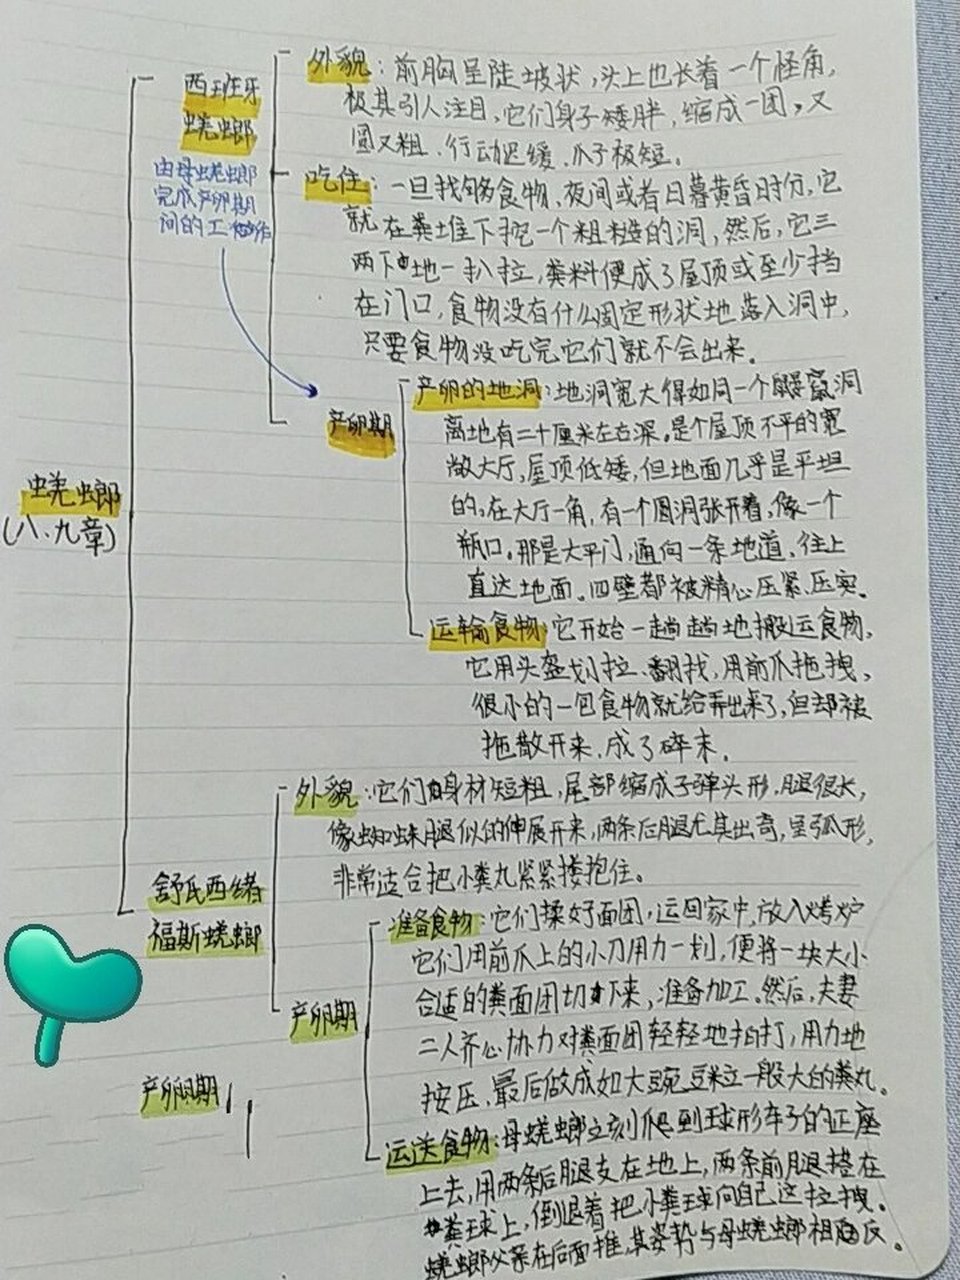 西班牙
蜣螂
由母蜣螂
完成产卵期
间的工作
外貌：前胸呈陡坡状，头上也长着一个怪角，
极其引人注目，它们身子矮胖，缩成一团，又
圆又粗、行动迟缓、爪子极短。
吃住：一旦找够食物，夜间或者日暮黄昏时分，它
就在粪堆下挖一个粗糙的洞，然后，它三
两下地一扒拉，粪料便成了屋顶或至少挡
在门口，食物没有什么固定形状地落入洞中，
只要食物没吃完它们就不会出来。
产卵期
产卵的地洞：地洞宽大得如同一个鼹鼠洞
离地有二十厘米左右深。是个屋顶不平的宽
敞大厅，屋顶低矮，但地面几乎是平坦
的。在大厅一角，有一个圆洞张开着，像一个
瓶口。那是大平门，通向一条地道，往上
直达地面。四壁都被精心压紧、压实。
运输食物：它开始一趟趟地搬运食物，
它用头盔划拉、翻找，用前爪拖拽，
很小的一包食物就给弄出来了，但却被
拖散开来，成了碎末。
蜣螂
(八、九章)
舒氏西绪
福斯蜣螂
外貌：它们身材短粗，尾部缩成子弹头形，腿很长，
像蜘蛛腿似的伸展开来，两条后腿尤其出奇，呈弧形，
非常适合把小粪丸紧紧搂抱住。
产卵期
准备食物：它们揉好面团，运回家中，放入烤炉
它们用前爪上的小刀用力一划，便将一块大小
合适的粪面团切下来，准备加工。然后，夫妻
二人齐心协力对粪面团轻轻地拍打，用力地
按压，最后做成如大豌豆粒一般大的粪丸。
运送食物：母蜣螂立刻爬到球形车子的正座
上去，用两条后腿支在地上，两条前腿搭在
粪球上，倒退着把小粪球向自己这拉拽。
蜣螂父亲在后面推，其姿势与母蜣螂相反。
产卵期